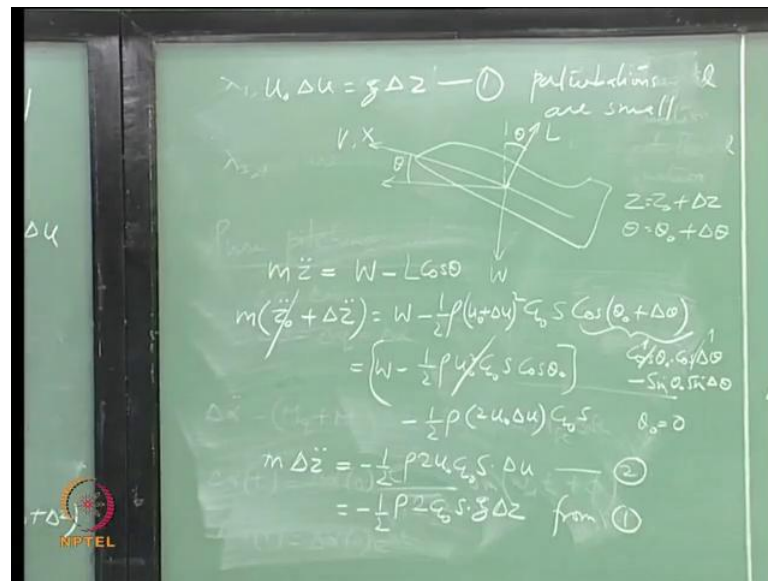 u₀ Δu = g Δz — ① perturbations
are small
V, X θ θ L
z = z₀ + Δz
θ = θ₀ + Δθ
W
Δu
m z̈ = W - L Cosθ
m(z̈₀ + Δz̈) = W - 1/2 ρ(u₀+Δu)² C_{L0} S Cos(θ₀ + Δθ)
= [W - 1/2 ρ u₀² C_{L0} S Cosθ₀] Cosθ₀·CosΔθ
- Sinθ₀ SinΔθ
- 1/2 ρ (2u₀Δu) C_{L0} S θ₀ = 0
m Δz̈ = -1/2 ρ 2u₀ C_{L0} S · Δu — ②
= -1/2 ρ 2 C_{L0} S · g Δz from ①
NPTEL